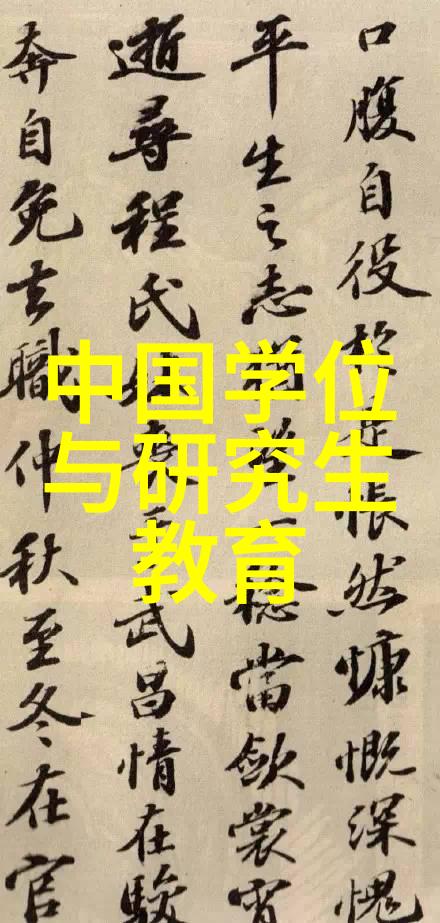 口腹自役於是悵然慷慨深愧
平生之志猶望一稔當斂裳宵
逝尋程氏妹喪于武昌情在駿
奔自免去職仲秋至冬在官
中国学位
与研究生
教育